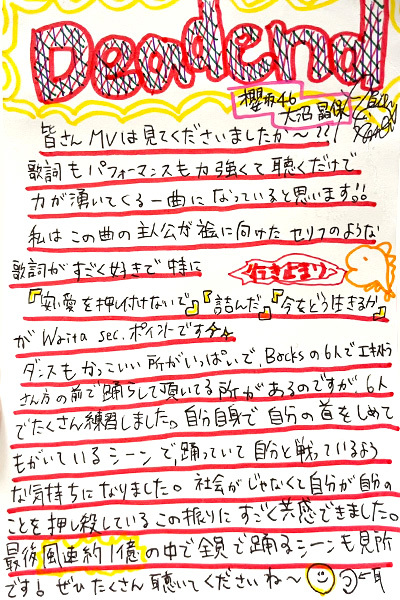 Deadend
櫻坂46
大沼晶保
皆さんMVは見てくださいましたか〜??
歌詞もパフォーマンスも力強くて聴くだけで
力が湧いてくる一曲になっていると思います!!
私はこの曲の主人公が絵に向けたセリフのような
歌詞がすごく好きで特に
行き止まり
『安い愛を押し付けないで』『詰んだ』『今をどう生きるか』
がWarita sec.ポイントです
ダンスもかっこいい所がいっぱいで、Backsの6人でエキストラ
さん方の前で踊らして頂いてる所があるのですが、6人
でたくさん練習しました。自分自身で自分の首をしめて
もがいているシーンで、踊っていて自分と戦っているよう
な気持ちになりました。社会がじゃなくて自分が自分の
ことを押し殺しているこの振りにすごく共感できました。
最後風速約1億の中で全員で踊るシーンも見所
です!ぜひたくさん聴いてくださいね〜